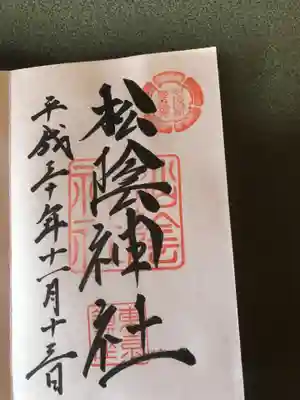 松陰神社
平成三十年十一月十三日